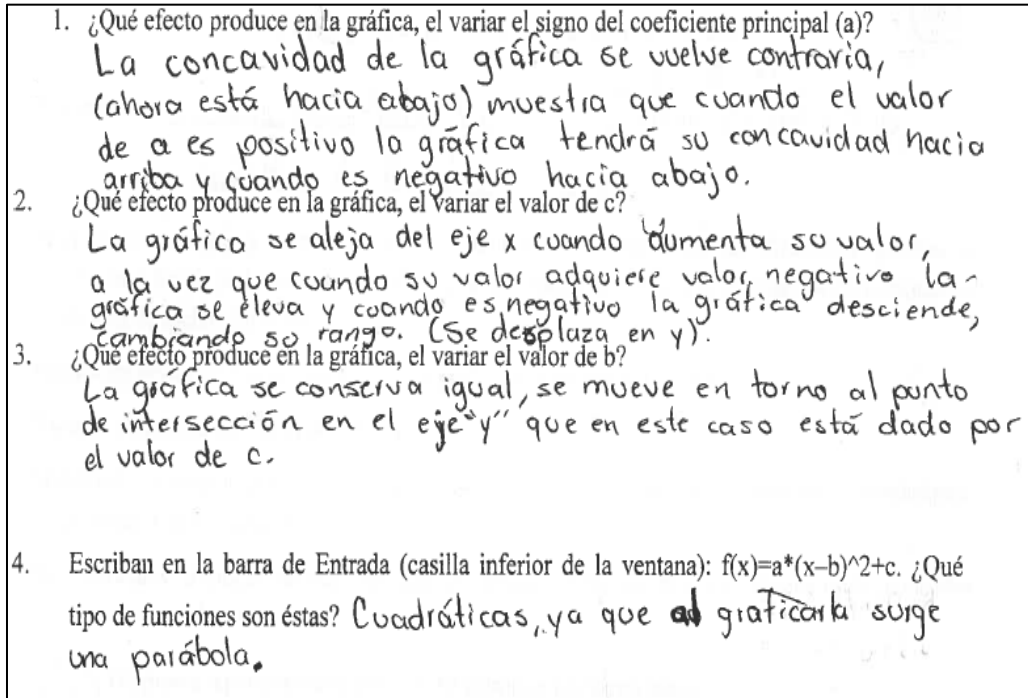 1. ¿Qué efecto produce en la gráfica, el variar el signo del coeficiente principal (a)?
La concavidad de la gráfica se vuelve contraria,
(ahora está hacia abajo) muestra que cuando el valor
de a es positivo la gráfica tendrá su concavidad hacia
arriba y cuando es negativo hacia abajo.
2. ¿Qué efecto produce en la gráfica, el variar el valor de c?
La gráfica se aleja del eje x cuando aumenta su valor,
a la vez que cuando su valor adquiere valor negativo la
gráfica se eleva y cuando es negativo la gráfica desciende,
cambiando su rango. (Se desplaza en y).
3. ¿Qué efecto produce en la gráfica, el variar el valor de b?
La gráfica se conserva igual, se mueve en torno al punto
de intersección en el eje "y" que en este caso está dado por
el valor de c.
4. Escriban en la barra de Entrada (casilla inferior de la ventana): f(x)=a*(x–b)^2+c. ¿Qué
tipo de funciones son éstas? Cuadráticas, ya que al graficarla surge
una parábola.